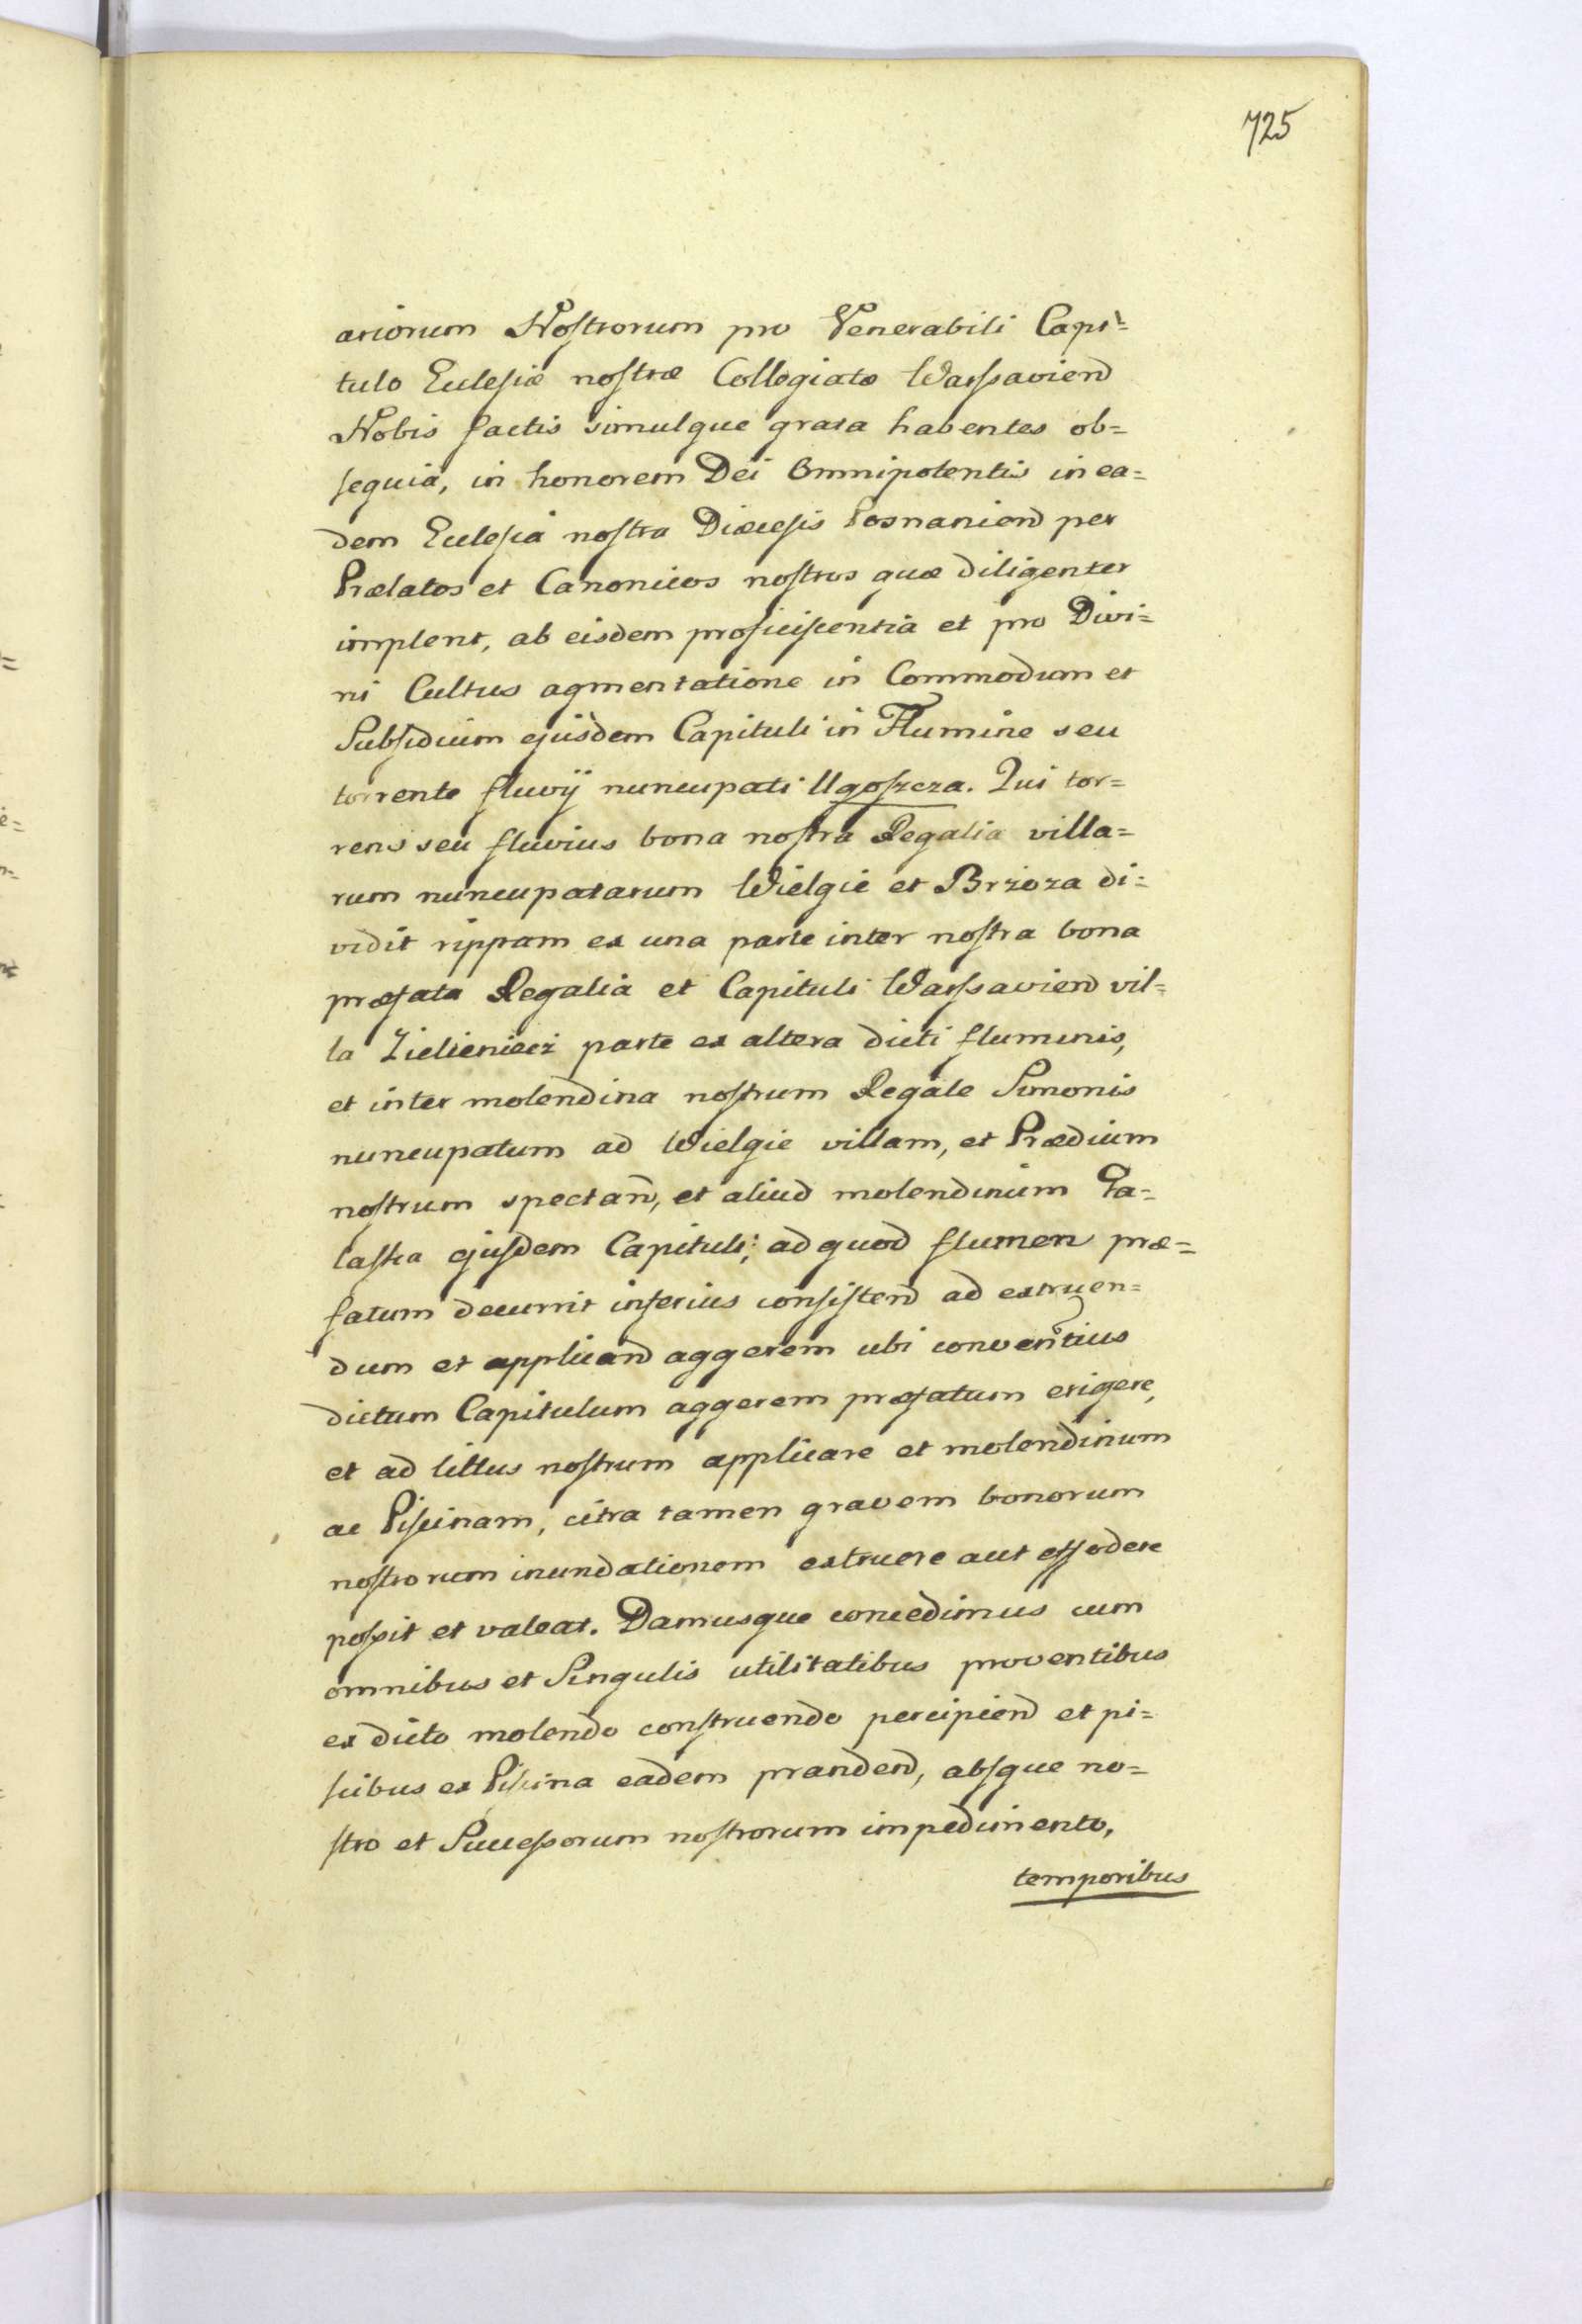 725
ariorum Nostrorum pro Venerabili Capi=
tulo Eclesiæ nostræ Collegiatæ Warssaviend
Nobis factis simulque grata habentes ob=
sequia, in honorem Dei Omnipotentis in ea=
dem Eclesia nostra Diæcesis Posnaniend per
Prælatos et Canonicos nostros quæ diligenter
implent, ab eisdem proficiscentia et pro Divi=
ni Cultus agmentatione in Commodum et
Subsidium ejusdem Capituli in Flumine seu
torrente fluvij nuncupati Ugoszcza. Qui tor=
rens seu fluvius bona nostra Regalia villa=
rum nuncupatarum Wielgie et Brzoza di=
vidit rippam ex una parte inter nostra bona
præfata Regalia et Capituli Warssaviend vil=
la Zieleniecz parte ex altera dicti fluminis,
et inter molendina nostrum Regale Simonis
nuncupatum ad Wielgie villam, et Prædium
nostrum spectan, et aliud molendinum Pa=
laska ejusdem Capituli; ad quod flumen præ=
fatum decurrit inferius consistend ad extruen=
dum et applicand aggerem ubi conventius
dictum Capitulum aggerem præfatum erigere,
et ad littus nostrum applicare et molendinum
ac Piscinam, citra tamen gravem bonorum
nostrorum inundationem extruere aut effodere
possit et valeat. Damusque concedimus cum
omnibus et Singulis utilitatibus proventibus
ex dicto molendo construendo percipiend et pi=
scibus ex Piscina eadem prandend, absque no=
stro et Successorum nostrorum impedimento,
temporibus